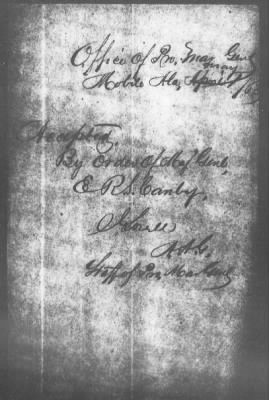 Office Of Pro. Mar. Genl
Mobile Ala, May
Accepted,
By Order Of Maj Genl,
E. R. S. Canby,
A A G,
Staff of Pro Mar Genl